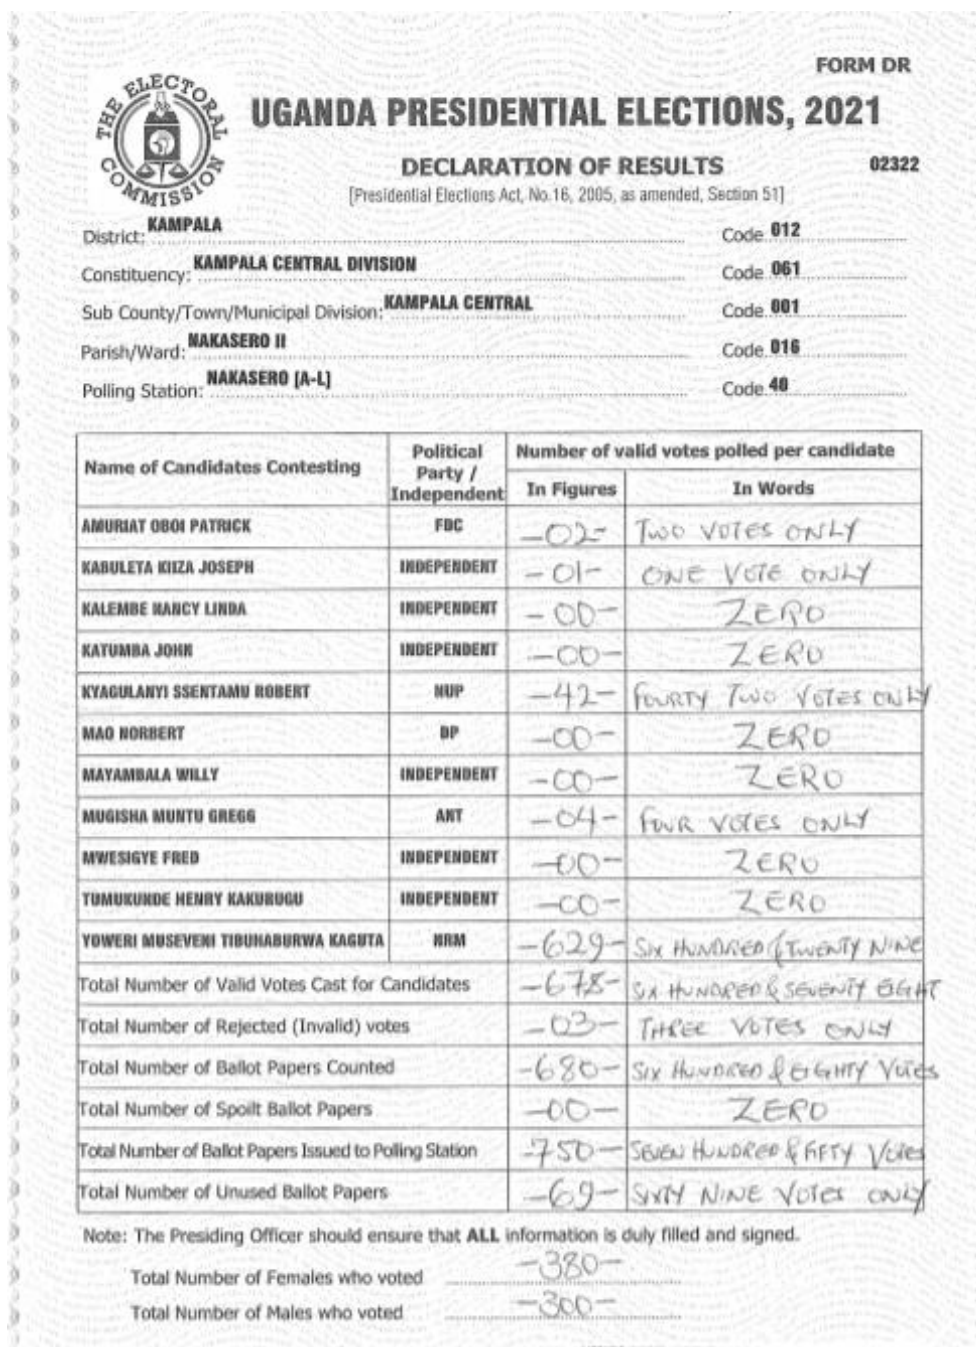 FORM DR
THE ELECTORAL COMMISSION
UGANDA PRESIDENTIAL ELECTIONS, 2021
DECLARATION OF RESULTS 02322
[Presidential Elections Act, No.16, 2005, as amended, Section 51]
District: KAMPALA Code 012
Constituency: KAMPALA CENTRAL DIVISION Code 061
Sub County/Town/Municipal Division: KAMPALA CENTRAL Code 001
Parish/Ward: NAKASERO II Code 016
Polling Station: NAKASERO [A-L] Code 40
Name of Candidates Contesting Political Party / Independent Number of valid votes polled per candidate
In Figures In Words
AMURIAT OBOI PATRICK FDC -02- TWO VOTES ONLY
KABULETA KIIZA JOSEPH INDEPENDENT -01- ONE VOTE ONLY
KALEMBE NANCY LINDA INDEPENDENT -00- ZERO
KATUMBA JOHN INDEPENDENT -00- ZERO
KYAGULANYI SSENTAMU ROBERT NUP -42- FOURTY TWO VOTES ONLY
MAO NORBERT DP -00- ZERO
MAYAMBALA WILLY INDEPENDENT -00- ZERO
MUGISHA MUNTU GREGG ANT -04- FOUR VOTES ONLY
MWESIGYE FRED INDEPENDENT -00- ZERO
TUMUKUNDE HENRY KAKURUGU INDEPENDENT -00- ZERO
YOWERI MUSEVENI TIBUHABURWA KAGUTA NRM -629- SIX HUNDRED & TWENTY NINE
Total Number of Valid Votes Cast for Candidates -678- SIX HUNDRED & SEVENTY EIGHT
Total Number of Rejected (Invalid) votes -03- THREE VOTES ONLY
Total Number of Ballot Papers Counted -680- SIX HUNDRED & EIGHTY VOTES
Total Number of Spoilt Ballot Papers -00- ZERO
Total Number of Ballot Papers Issued to Polling Station -750- SEVEN HUNDRED & FIFTY VOTES
Total Number of Unused Ballot Papers -69- SIXTY NINE VOTES ONLY
Note: The Presiding Officer should ensure that ALL information is duly filled and signed.
Total Number of Females who voted -380-
Total Number of Males who voted -300-